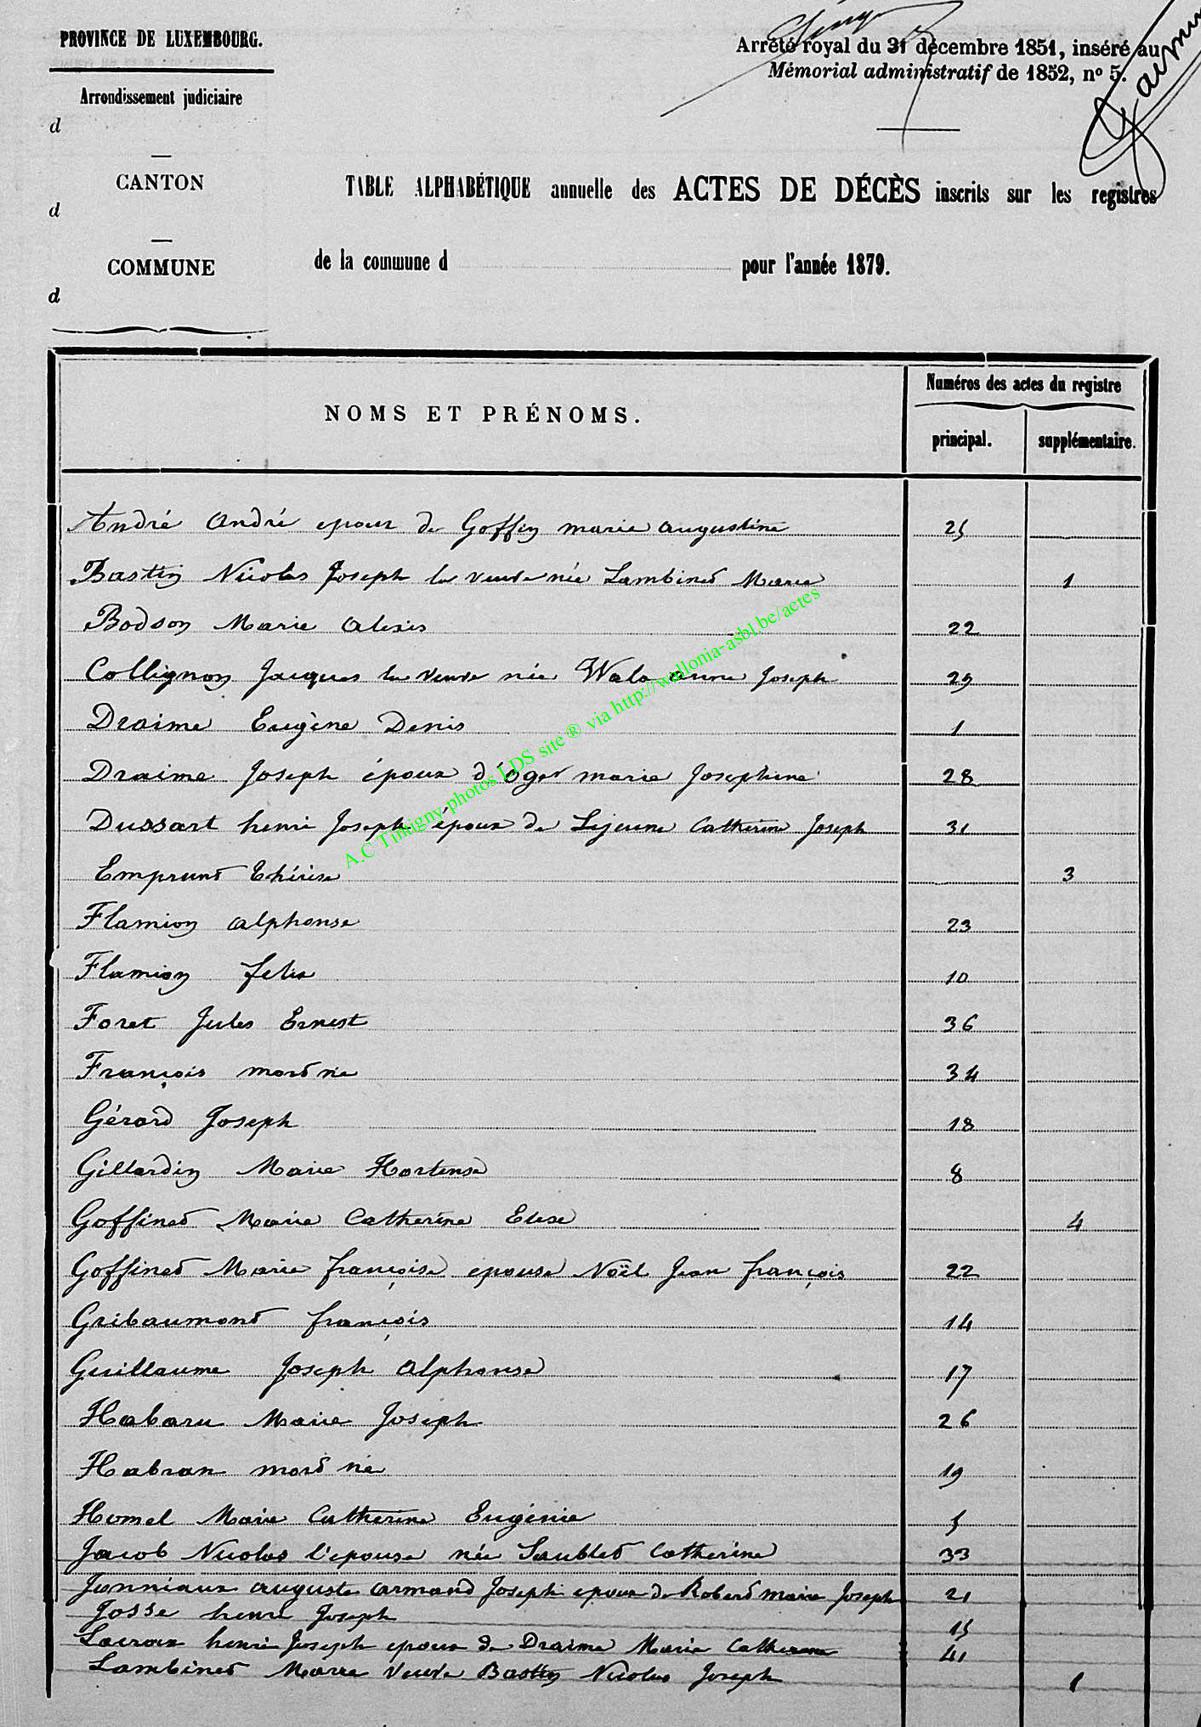 PROVINCE DE LUXEMBOURG.
Arrêté royal du 31 décembre 1851, inséré au
Mémorial administratif de 1852, nº 5.
Arrondissement judiciaire
d
CANTON
d
TABLE ALPHABÉTIQUE annuelle des ACTES DE DÉCÈS inscrits sur les registres
COMMUNE
d
de la commune d pour l'année 1879.
NOMS ET PRÉNOMS.
Numéros des actes du registre
principal. supplémentaire.
André André epoux de Goffin marie augustine 25
Bastin Nicolas Joseph la veuve née Lambinet Marie 1
Bodson Marie Alexis 22
Collignon Jacques la veuve née Joseph 29
Draime Eugène Denis 1
Draime Joseph époux d'Oger marie Josephine 28
Dussart henri Joseph époux de Lejeune Catherine Joseph 31
Emprunt Thérèse 3
Flamion alphonse 23
Flamion felix 10
Foret Jules Ernest 36
François mort né 34
Gérard Joseph 18
Gillardin Marie Hortense 8
Goffinet Marie Catherine Elise 4
Goffinet Marie françoise epouse Noël Jean françois 22
Gribaumont françois 14
Guillaume Joseph alphonse 17
Habaru Marie Joseph 26
Habran mort né 19
Homel Marie Catherine Eugénie 5
Jacob Nicolas l'epouse née Saublet Catherine 33
Jonniaux auguste armand Joseph epoux de Robert marie Joseph 21
Josse henri Joseph 15
Lacroix henri Joseph epoux de Draime Marie Catherine 41
Lambinet Marie veuve Bastin Nicolas Joseph 1
A.C Tintigny photos LDS site ® via http://wallonia-asbl.be/actes